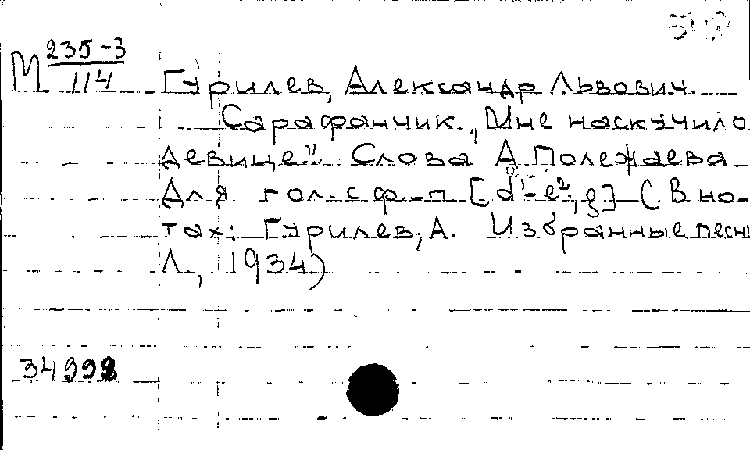 М 235-3
114
Гурилев, Александр Львович.
Сарафанчик. „Мне наскучило
девице". Слова А Полежаева
Для гол. с ф-п [d¹-e², g] (В но-
тах: Гурилев, А. Избранные песн
Л., 1934)